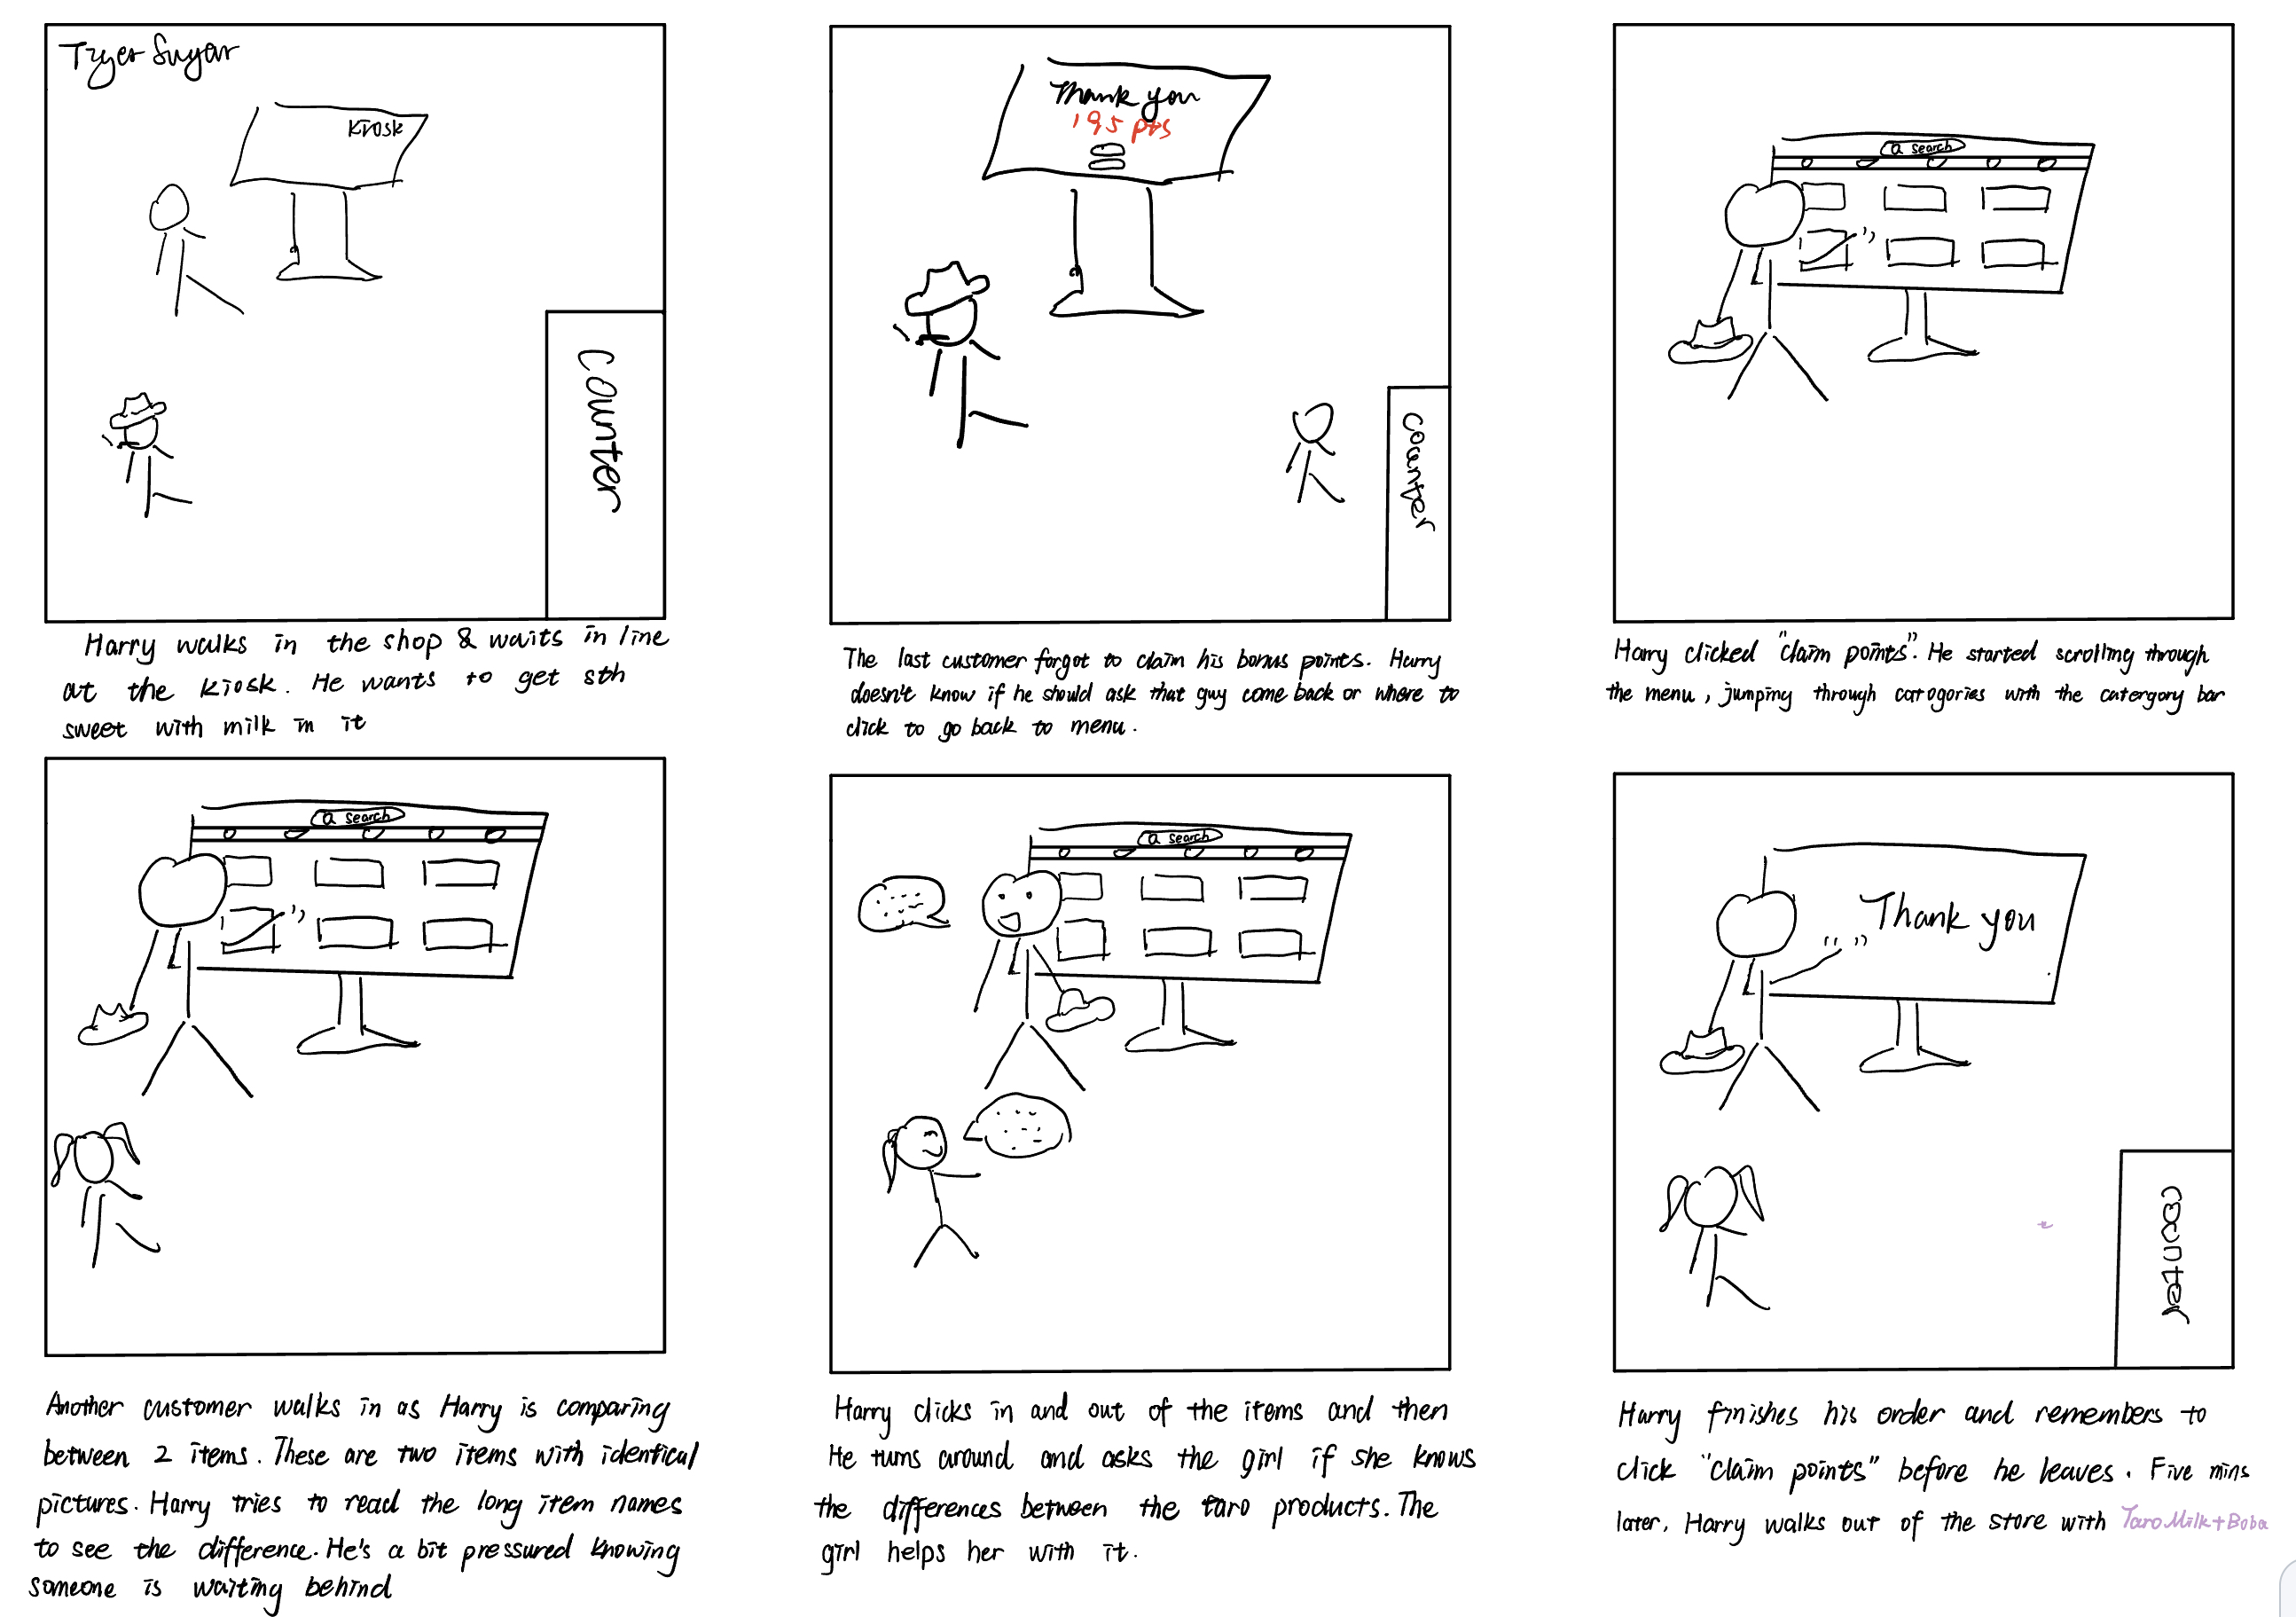 Tyger Sugar
Kiosk
counter
Harry walks in the shop & waits in line
at the kiosk. He wants to get sth
sweet with milk in it
Thank you
195 pts
counter
The last customer forgot to claim his bonus points. Harry
doesn't know if he should ask that guy come back or where to
click to go back to menu.
search
Harry clicked "claim points". He started scrolling through
the menu, jumping through catogories with the catergory bar
search
Another customer walks in as Harry is comparing
between 2 items. These are two items with identical
pictures. Harry tries to read the long item names
to see the difference. He's a bit pressured knowing
someone is waiting behind
search
Harry clicks in and out of the items and then
He turns around and asks the girl if she knows
the differences between the taro products. The
girl helps her with it.
Thank you
counter
Harry finishes his order and remembers to
click "claim points" before he leaves. Five mins
later, Harry walks out of the store with Taro Milk + Boba